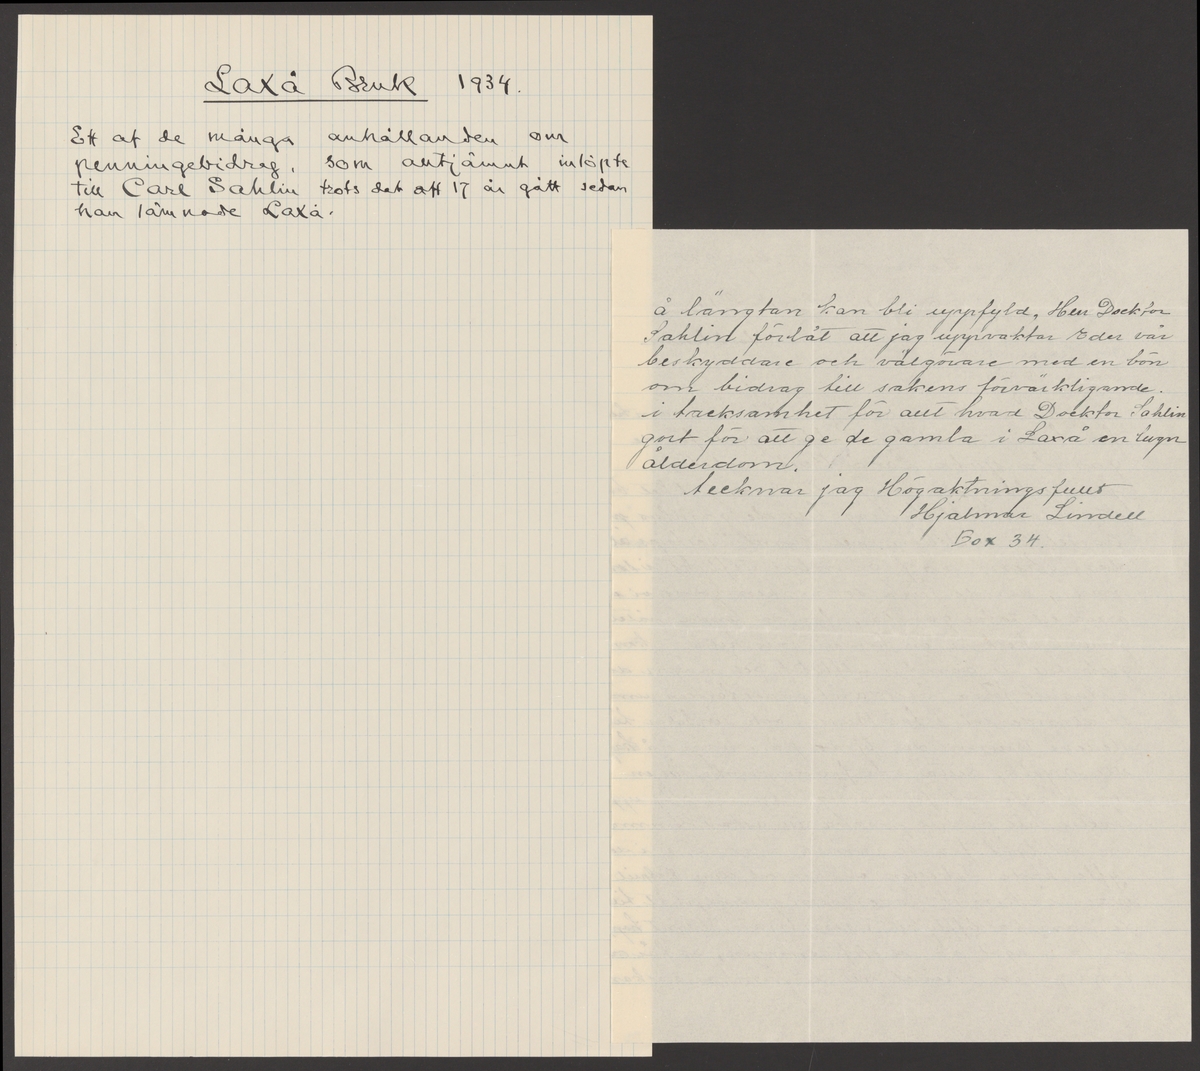 Laxå Bruk 1934.
Ett af de många anhållanden om
penningebidrag, som alltjämnt inlöpte
till Carl Sahlin trots det att 17 år gått sedan
han lämnade Laxå.
å längtan kan bli uppfyld, Herr Docktor
Sahlin förlåt att jag uppvaktar Eder vår
beskyddare och välgörare med en bön
om bidrag till sakens förvärkligande.
i tacksamhet för allt hvad Docktor Sahlin
gort för att ge de gamla i Laxå en lugn
ålderdom.
tecknar jag Högaktningsfullt
Hjalmar Lindell
Box 34.